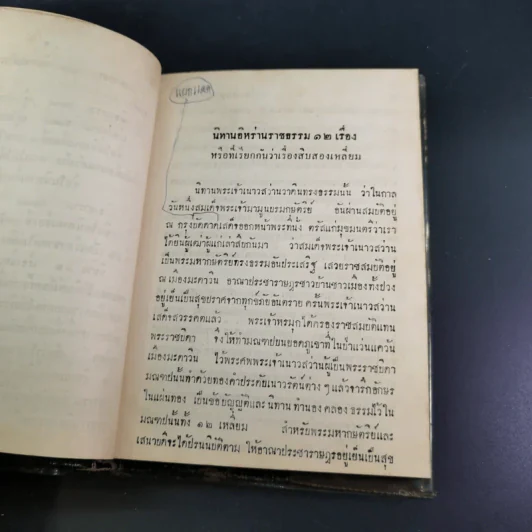 นิทานอิหร่านราชธรรม ๑๒ เรื่อง
หรือที่เรียกกันว่าเรื่องสิบสองเหลี่ยม
นิทานพระเจ้าเนาวสว่านวาคินทรงธรรมนั้น ว่าในกาล
วันหนึ่งสมเด็จพระเจ้ามามูนบรมกษัตริย์ อันผ่านสมบัติอยู่
ณ กรุงบัคดาดเสด็จออกหน้าพระที่นั่ง ตรัสแก่มุขมนตรีว่าเรา
ได้ยินผู้เฒ่าผู้แก่เล่าสืบกันมา ว่าสมเด็จพระเจ้าเนาวสว่าน
เป็นพระมหากษัตริย์ทรงธรรมอันประเสริฐ เสวยราชสมบัติอยู่
ณ เมืองมะดาวิน อาณาประชาราษฎรชาวบ้านชาวเมืองทั้งปวง
อยู่เย็นเป็นสุขปราศจากทุกข์ภัยอันตราย ครั้นพระเจ้าเนาวสว่าน
เสด็จสวรรคตแล้ว พระเจ้าหรมุกได้ครองราชสมบัติแทน
พระราชบิดา จึงให้ทำมณฑปบนยอดภูเขาที่ในย่านแคว้น
เมืองมะดาวิน ไว้พระศพพระเจ้าเนาวสว่านผู้เป็นพระราชบิดา
มณฑปนั้นทำด้วยทองคำประดับเนาวรัตน์ต่าง ๆ แล้วจารึกอักษร
ในแผ่นทอง เป็นข้อบัญญัติและนิทาน ทำนอง คลอง ธรรมไว้ใน
มณฑปนั้นทั้ง ๑๒ เหลี่ยม สำหรับพระมหากษัตริย์และ
เสนาบดีจะได้ปรนนิบัติตาม ให้อาณาประชาราษฎรอยู่เย็นเป็นสุข